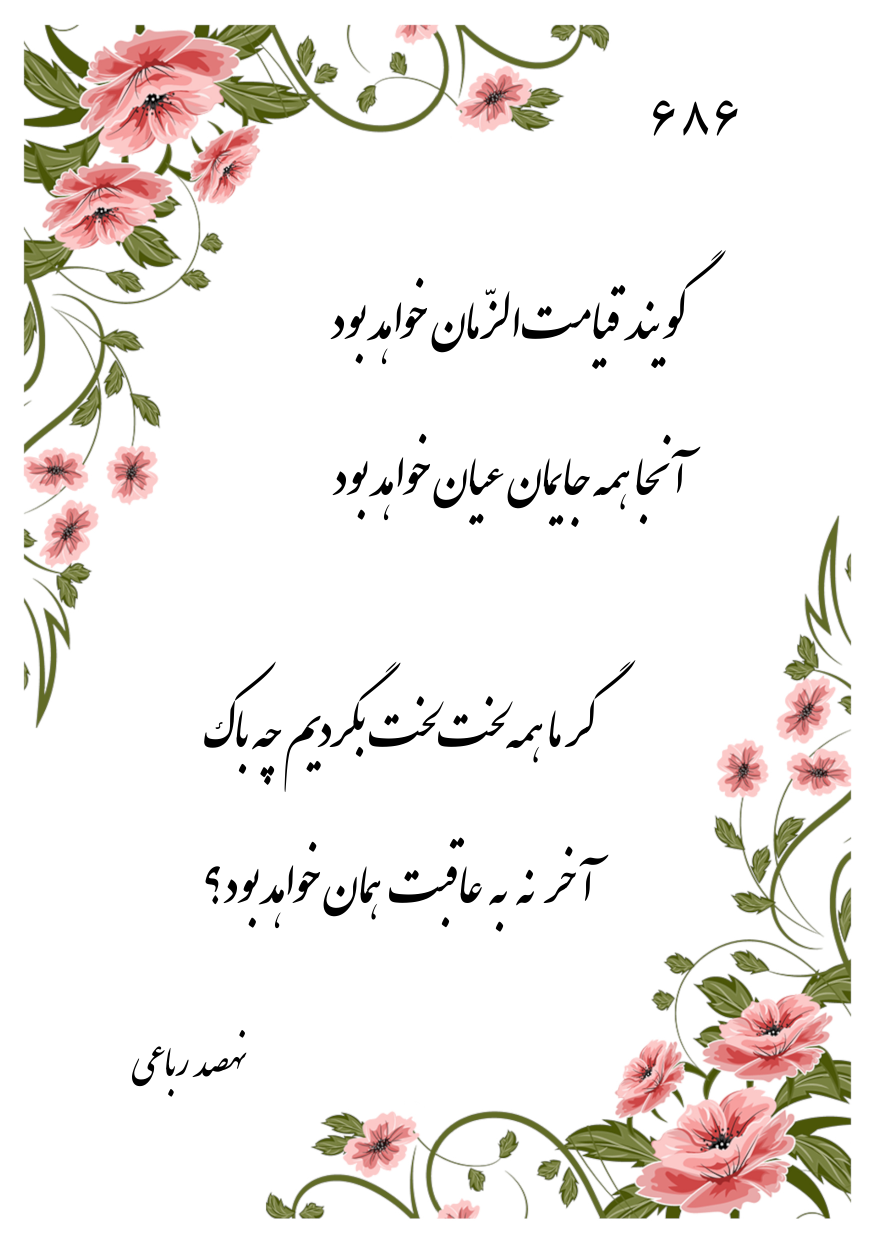 ۶۸۶
گویند قیامت‌الزّمان خواهد بود
آنجا همه جایمان عیان خواهد بود
گر ما همه لخت لخت بگردیم چه باک
آخر نه به عاقبت همان خواهد بود؟
نهصد رباعی